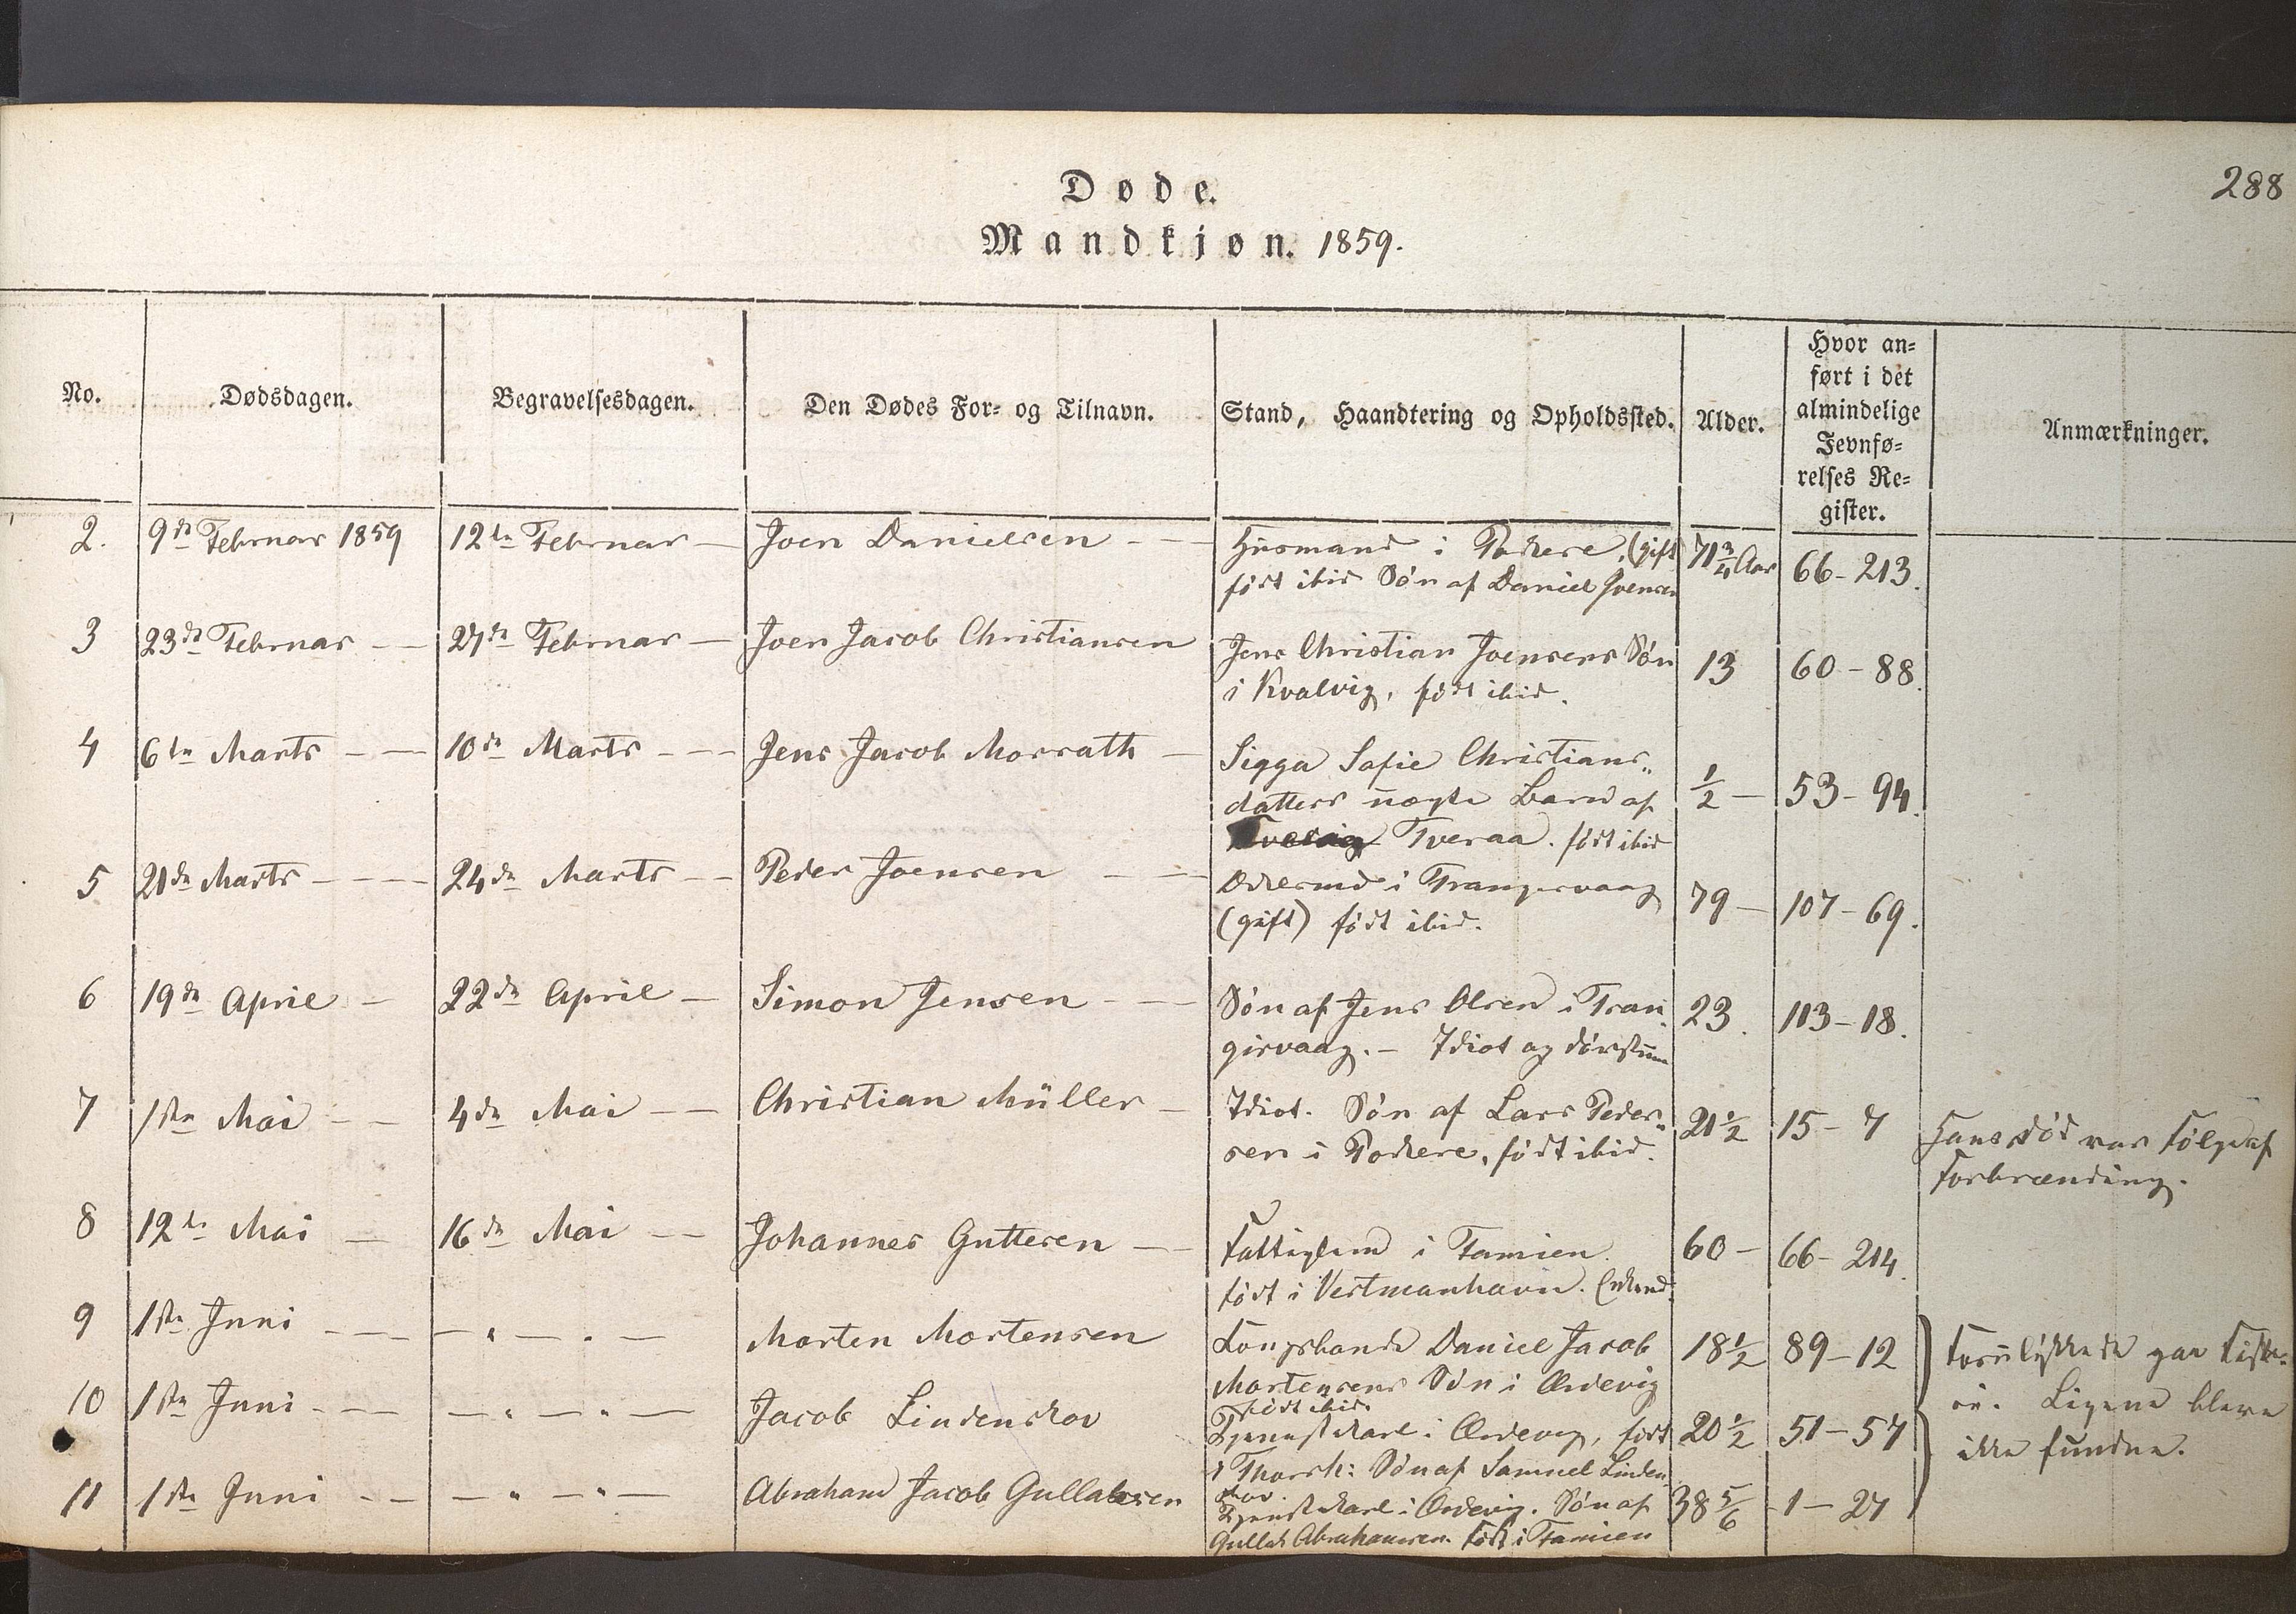 288
Døde.
Mandkjøn. 1859.
No.
Dødsdagen.
Begravelsesdagen.
Den Dødes For- og Tilnavn.
Stand, Haandtering og Opholdssted.
Alder.
Hvor an-
ført i det
almindelige
Jevnfø-
relses Re-
gister.
Anmærkninger.
2. 9de Februar 1859 12te Februar — Joen Danielsen — Husmand i Porkere, (gift 71 3/4 Aar 66-213.
født ibid Søn af Daniel Joensen
3 23de Februar — 27de Februar — Joen Jacob Christiansen Jens Christian Joensens Søn 13 60-88.
i Kvalvig, født ibid.
4 6te Marts — 10de Marts — Jens Jacob Morrath — Sigga Sofie Christians„
datters uægte Barn af 1/2 — 53-94.
Tveraa. født ibid
5 21de Marts — 24de Marts — Peder Joensen — i Trangisvaag 79 — 107-69.
(gift) født ibid.
6 19de April — 22de April — Simon Jensen — Søn af Jens Olsen i Tran„ 23. 113-18.
gisvaag. — Idiot og døvstum
7 1ste Mai — 4de Mai — Christian Müller — Idiot. Søn af Lars Peder„ 21 1/2 15-7 Hans Død var Følge af
sen i Porkere, født ibid. Forbrænding.
8 12te Mai — 16de Mai — Johannes Guttesen — Fattiglem i Famien. 60 — 66-214.
født i Vestmanhavn. Enkemd.
9 1ste Juni — — " — " — Morten Mortensen Kongsbonde Daniel Jacob 18 1/2 89-12 Forulykkede paa Fiske-
Mortensens Søn i Ørdevig
født ibid.
10 1ste Juni — — " — " — Jacob Lindenskov Tjenestekarl i Ørdevig, født 20 1/2 51-57 rie. Ligene bleve
i Thorsh: Søn af Samuel Linden„ ikke fundne.
skov.
11 1ste Juni — — " — " — Abraham Jacob Gullaksen Tjenestekarl i Ørdevig. Søn af 38 5/6 1-27
Gullak Abrahamsen. Født i Famien